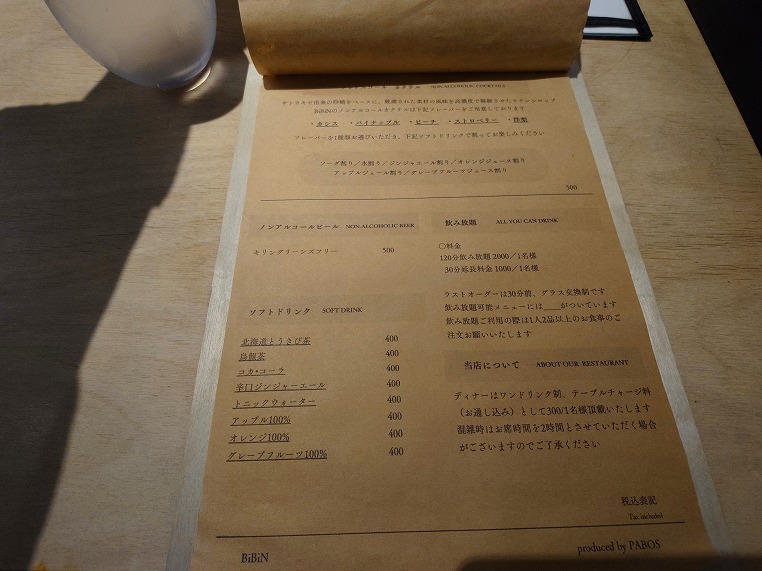 NON ALCOHOLIC COCKTAILS
サトウキビ由来の砂糖をベースに、厳選された素材の風味を高濃度で凝縮させたリキッドシロップ
BiBiNのノンアルコールカクテルは下記フレーバーをご用意しております
・カシス ・パイナップル ・ピーチ ・ストロベリー ・洋梨
フレーバーを1種類お選びいただき、下記ソフトドリンクで割ってお楽しみください
ソーダ割り／水割り／ジンジャエール割り／オレンジジュース割り
アップルジュール割り／グレープフルーツジュース割り
500
ノンアルコールビール NON.ALCOHOLIC BEER
キリングリーンズフリー 500
ソフトドリンク SOFT DRINK
北海道とうきび茶 400
烏龍茶 400
コカ・コーラ 400
辛口ジンジャーエール 400
トニックウォーター 400
アップル100% 400
オレンジ100% 400
グレープフルーツ100% 400
飲み放題 ALL YOU CAN DRINK
〇料金
120分飲み放題 2000／1名様
30分延長料金 1000／1名様
ラストオーダーは30分前、グラス交換制です
飲み放題可能メニューには___がついています
飲み放題ご利用の際は1人2品以上のお食事のご
注文お願いいたします
当店について ABOUT OUR RESTAURANT
ディナーはワンドリンク制、テーブルチャージ料
（お通し込み）として300/1名様頂戴いたします
混雑時はお席時間を2時間とさせていただく場合
がございますのでご了承ください
税込表記
Tax included
BiBiN
produced by PABOS